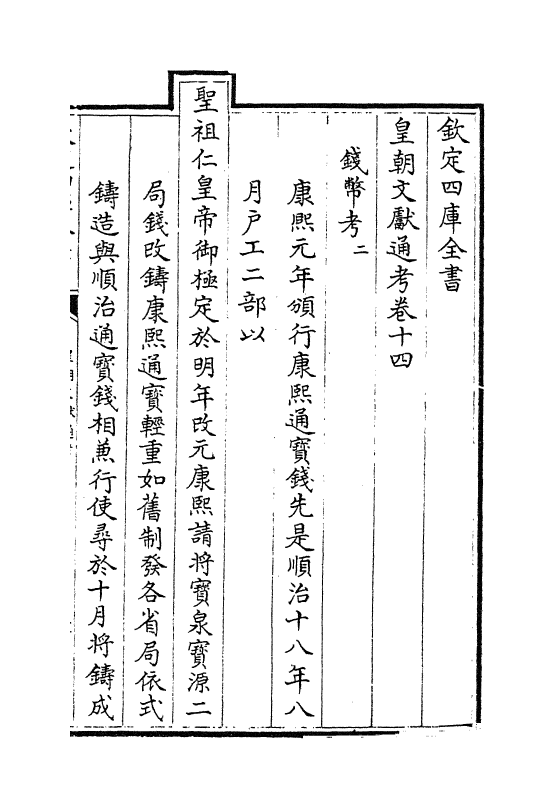 欽定四庫全書
皇朝文獻通考卷十四
錢幣考二
康熙元年頒行康熙通寶錢先是順治十八年八
月戶工二部以
聖祖仁皇帝御極定於明年改元康熙請將寶泉寶源二
局錢改鑄康熙通寶輕重如舊制發各省局依式
鑄造與順治通寶錢相兼行使尋於十月將鑄成